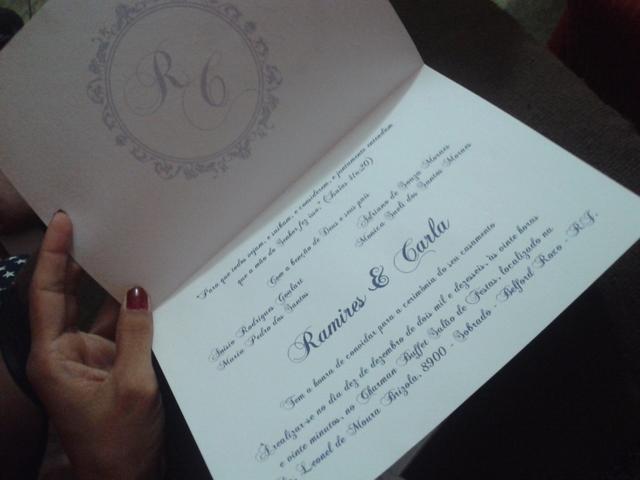 R C
"Para que todos vejam, e saibam, e considerem, e juntamente entendam
que a mão do Senhor fez isso." (Isaías 41:20)
Com a benção de Deus e seus pais
Rodrigues Goulart
Maria Pedro dos Santos
Adriano de Souza Moraes
Monica Sueli dos Santos Moraes
Ramires & Carla
Tem a honra de convidar para a cerimônia do seu casamento
Á realizar-se no dia dez de dezembro de dois mil e dezesseis, às vinte horas
e vinte minutos, no Charman Buffet Salão de Festas, localizado na
Leonel de Moura Brizola, 8900 - Sobrado - Belford Roxo - RJ.